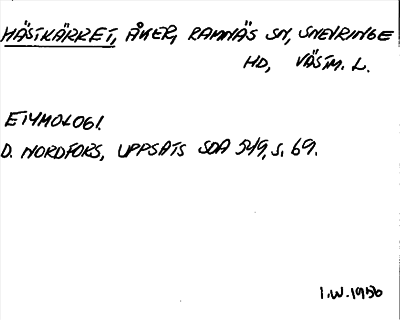 HÄSTKÄRRET, ÅKER, RAMNÄS SN, SNEVRINGE
HD, VÄSTM. L.
ETYMOLOGI.
D. NORDFORS, UPPSATS SOA 549, S. 69.
I.W. 1956